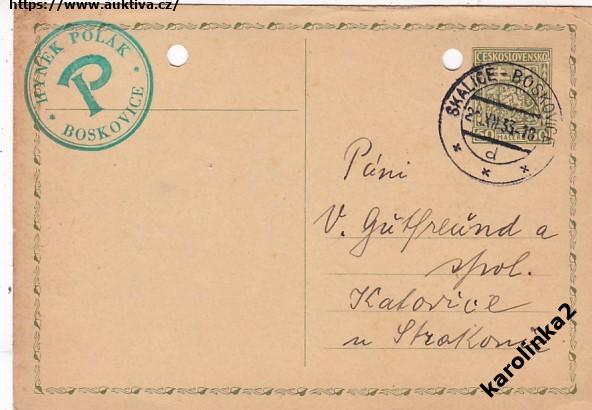 https://www.auktiva.cz/
HYNEK POLÁK
P
BOSKOVICE
ČESKOSLOVENSKO
SKALICE-BOSKOVICE
XII.33-18
d
50
Páni
V. Gütfreünd a
spol.
Katovice
u Strakonic
karolinka2